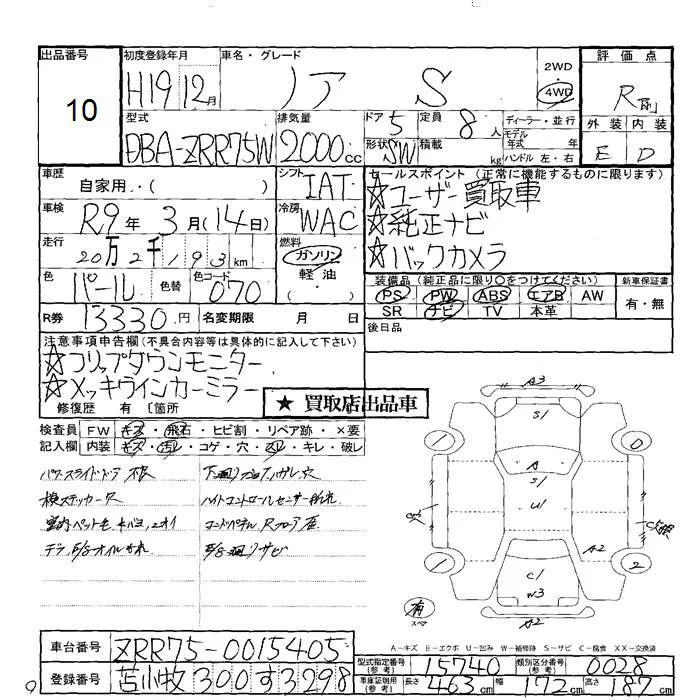 出品番号 10
初度登録年月 H19 12月
車名・グレード ノア S
2WD 4WD
評価点 R
外装 E 内装 D
型式 DBA-ZRR75W
排気量 2000cc
ドア 5 定員 8人
形状 SW 積載 kg
ディーラー・並行
モデル年式 年
ハンドル 左・右
車歴 自家用・( )
シフト IAT
セールスポイント (正常に機能するものに限ります)
☆ユーザー買取車
☆純正ナビ
☆バックカメラ
車検 R9年 3月(14日)
冷房 WAC
走行 20万2千193km
燃料 ガソリン 軽油 ・( )
色 パール 色替 色コード 070
装備品 (純正品に限り○をつけてください) 新車保証書
PS PW ABS エアB AW 有・無
SR ナビ TV 本革
R券 13330円 名変期限 月 日
後日品
注意事項申告欄(不具合内容等は具体的に記入して下さい)
☆フリップダウンモニター
☆メッキウインカーミラー
修復歴 有 〔箇所
★ 買取店出品車
検査員記入欄 FW キズ・飛石・ヒビ割・リペア跡・×要
内装 キズ・汚レ・コゲ・穴・スレ・キレ・破レ
パワースライドドア
検ステッカー穴
室内ペット毛
デフ、E/Gオイルもれ
ハイトコントロールセンサー折れ
E/G廻りサビ
A3
S1
A
S1
U1
C1
W3
A2
A2
1
0
1
2
有 スペア
A−キズ E−エクボ U−凹み W−補修跡 S−サビ C−腐食 XX−交換済
車台番号 ZRR75-0015405
登録番号 苫小牧 300 す 3298
型式指定番号(参考) 15740 類別区分番号(参考) 0028
車庫証明用(参考) 長さ 463cm 幅 172cm 高さ 187cm